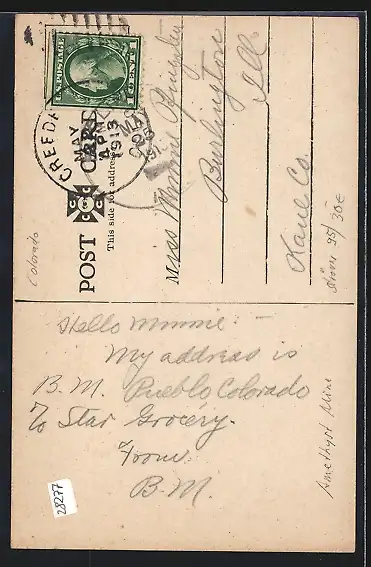 U.S. POSTAGE
1 CENT 1
CREEDE
MAY
PM
1913
COLO.
POST CARD
This side for address
Miss Minnie
Burlington
Ill
Kane Co.
Colorado
95/30€
Hello Minnie: –
My address is
B. M. Pueblo Colorado
To Star Grocery.
From
B. M.
Amethyst Mine
28277